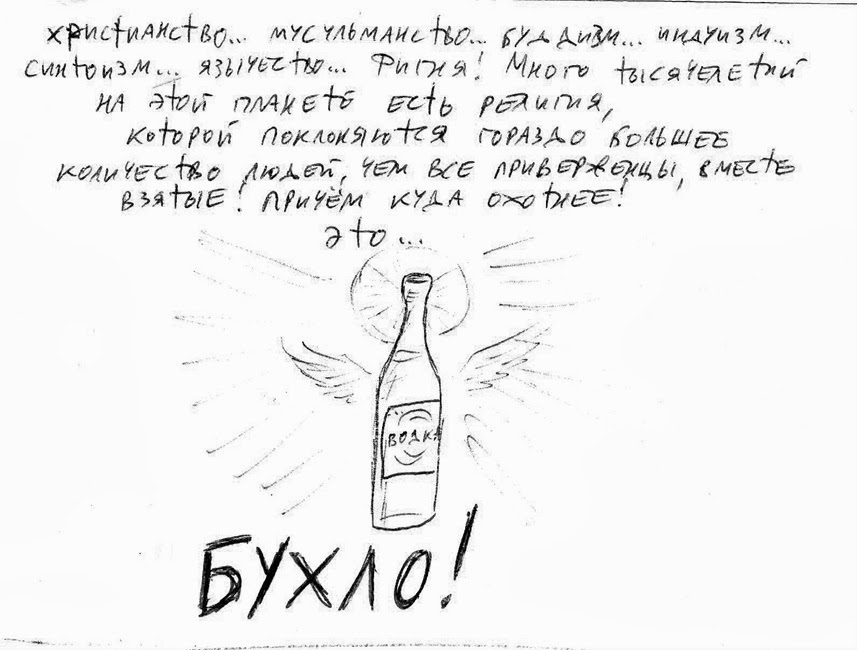 христианство... мусульманство... буддизм... индуизм...
синтоизм... язычество... Фигня! Много тысячелетий
на этой планете есть религия,
которой поклоняются гораздо большее
количество людей, чем все приверженцы, вместе
взятые! Причём куда охотнее!
Это...
ВОДКА
БУХЛО!